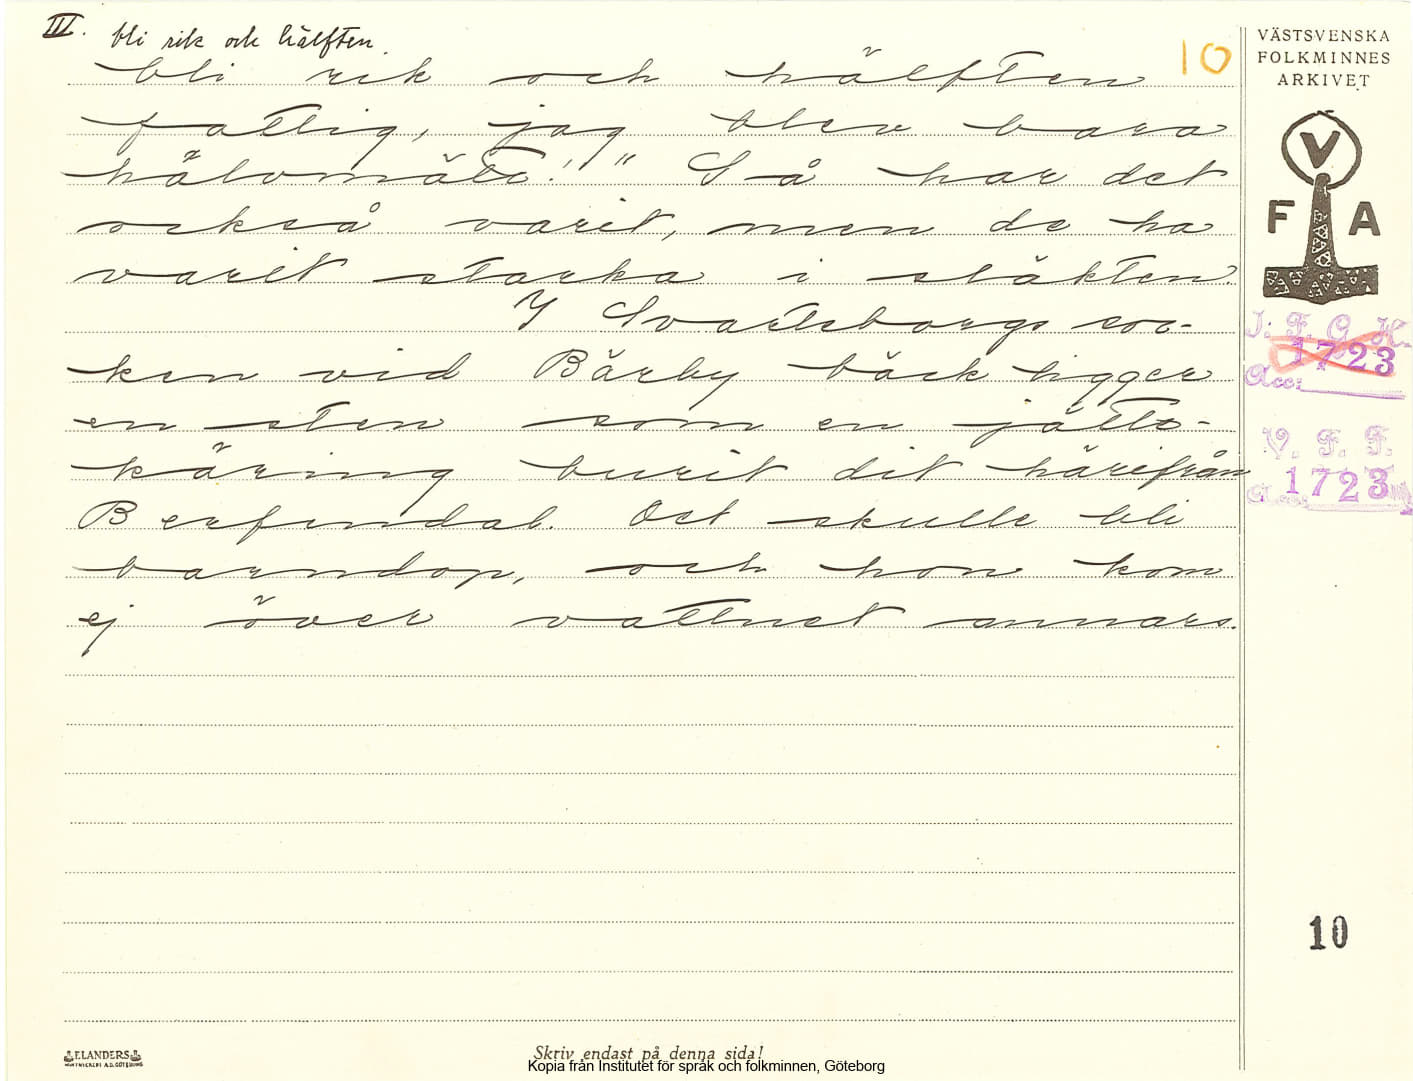 III. bli rik och hälften
10
bli rik och hälften
fattig, jag blev bara
hålvmätt!" Så har det
också varit, men de ha
varit starka i släkten.
I Svarteborgs soc-
ken vid Bärby bäck ligger
en sten som en jätte-
käring burit dit härifrån
Berfendal. Det skulle bli
barndop, och hon kom
ej över vattnet annars.
VÄSTSVENSKA
FOLKMINNES
ARKIVET
V
F A
I. F. G. H.
1723
Acc:
V. F. F.
1723
10
ELANDERS
Skriv endast på denna sida!
Kopia från Institutet för språk och folkminnen, Göteborg